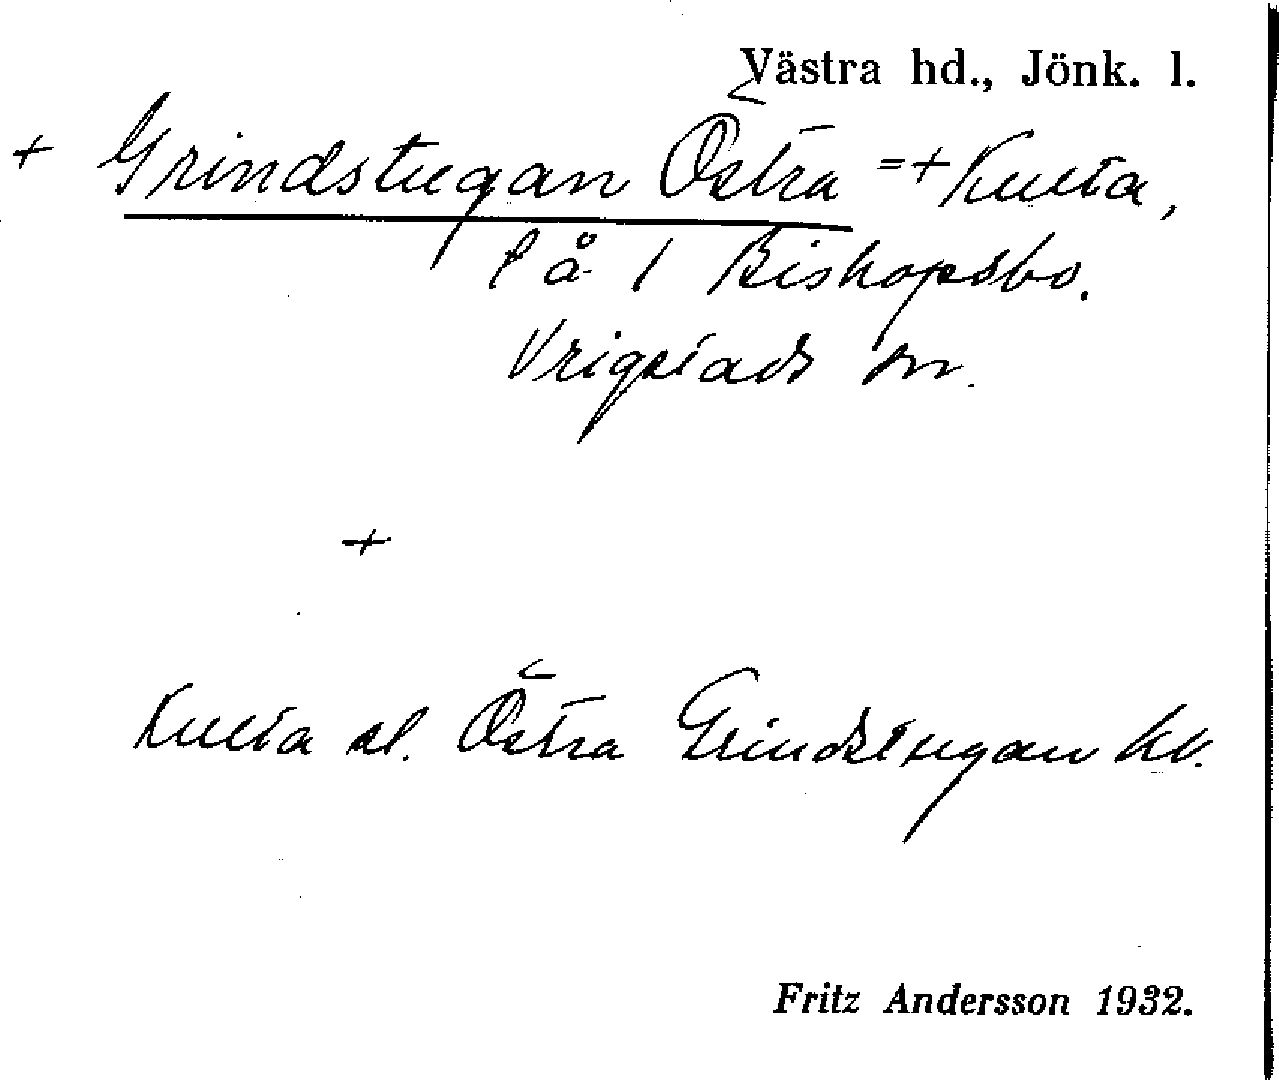 Västra hd., Jönk. l.
+ Grindstugan Östra = + Kulla,
l å 1 Biskopsbo.
Vrigstads sn.
+
Kulla el. Östra Grindstugan kv.
Fritz Andersson 1932.